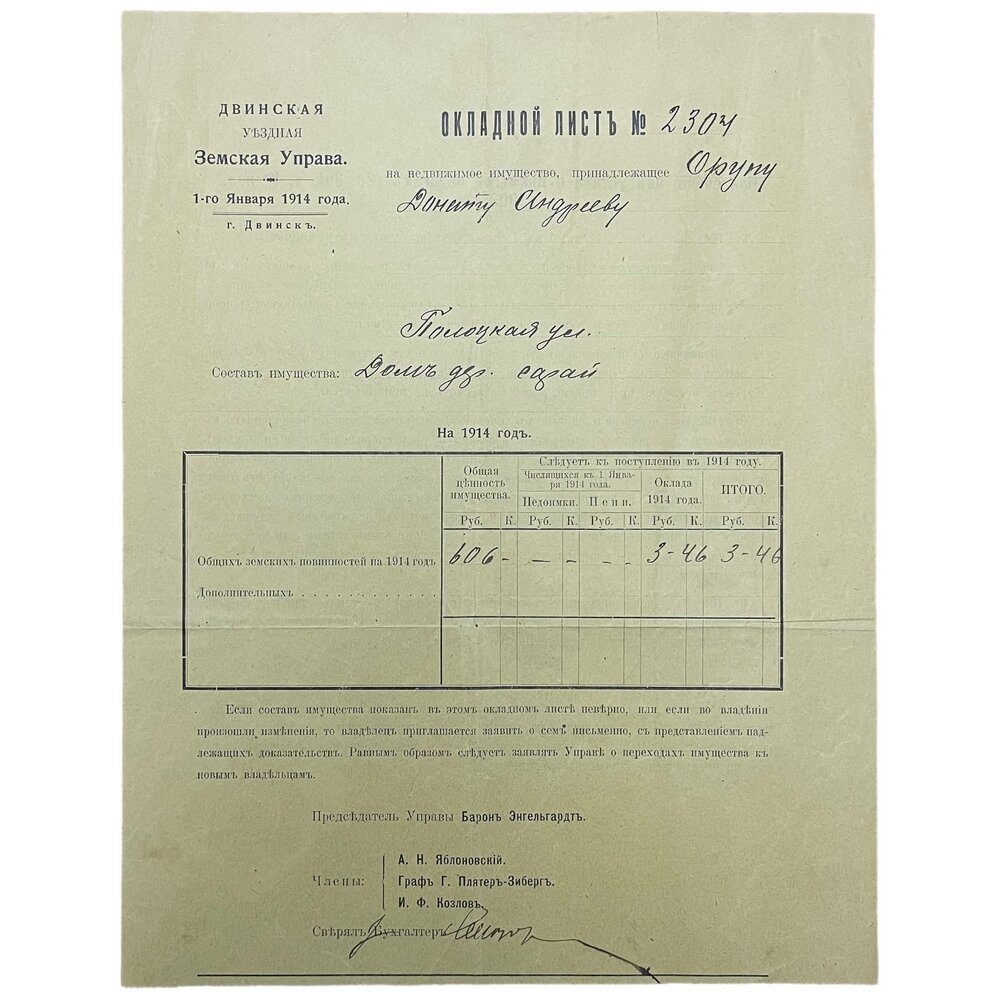 ДВИНСКАЯ
УѢЗДНАЯ
Земская Управа.
1-го Января 1914 года.
г. Двинскъ.
ОКЛАДНОЙ ЛИСТЪ № 2304
на недвижимое имущество, принадлежащее Орупу
Донату Андрееву
Полоцкая ул.
Составъ имущества: Домъ дер. сарай
На 1914 годъ.
Общая цѣнность имущества.
Слѣдуетъ къ поступленію въ 1914 году.
Числящихся къ 1 Янва-
ря 1914 года.
Недоимки. Пени.
Оклада 1914 года.
ИТОГО.
Руб. К. Руб. К. Руб. К. Руб. К. Руб. К.
Общихъ земскихъ повинностей на 1914 годъ 606 - — - - - 3-46 3-46
Дополнительныхъ . . . . . . . . . . . .
Если составъ имущества показанъ въ этомъ окладномъ листѣ невѣрно, или если во владѣніи
произошли измѣненія, то владѣлецъ приглашается заявить о семъ письменно, съ представленіемъ над-
лежащихъ доказательствъ. Равнымъ образомъ слѣдуетъ заявлять Управѣ о переходахъ имущества къ
новымъ владѣльцамъ.
Предсѣдатель Управы Баронъ Энгельгардтъ.
Члены:
А. Н. Яблоновскій.
Графъ Г. Плятеръ-Зибергъ.
И. Ф. Козловъ.
Свѣрялъ Бухгалтеръ